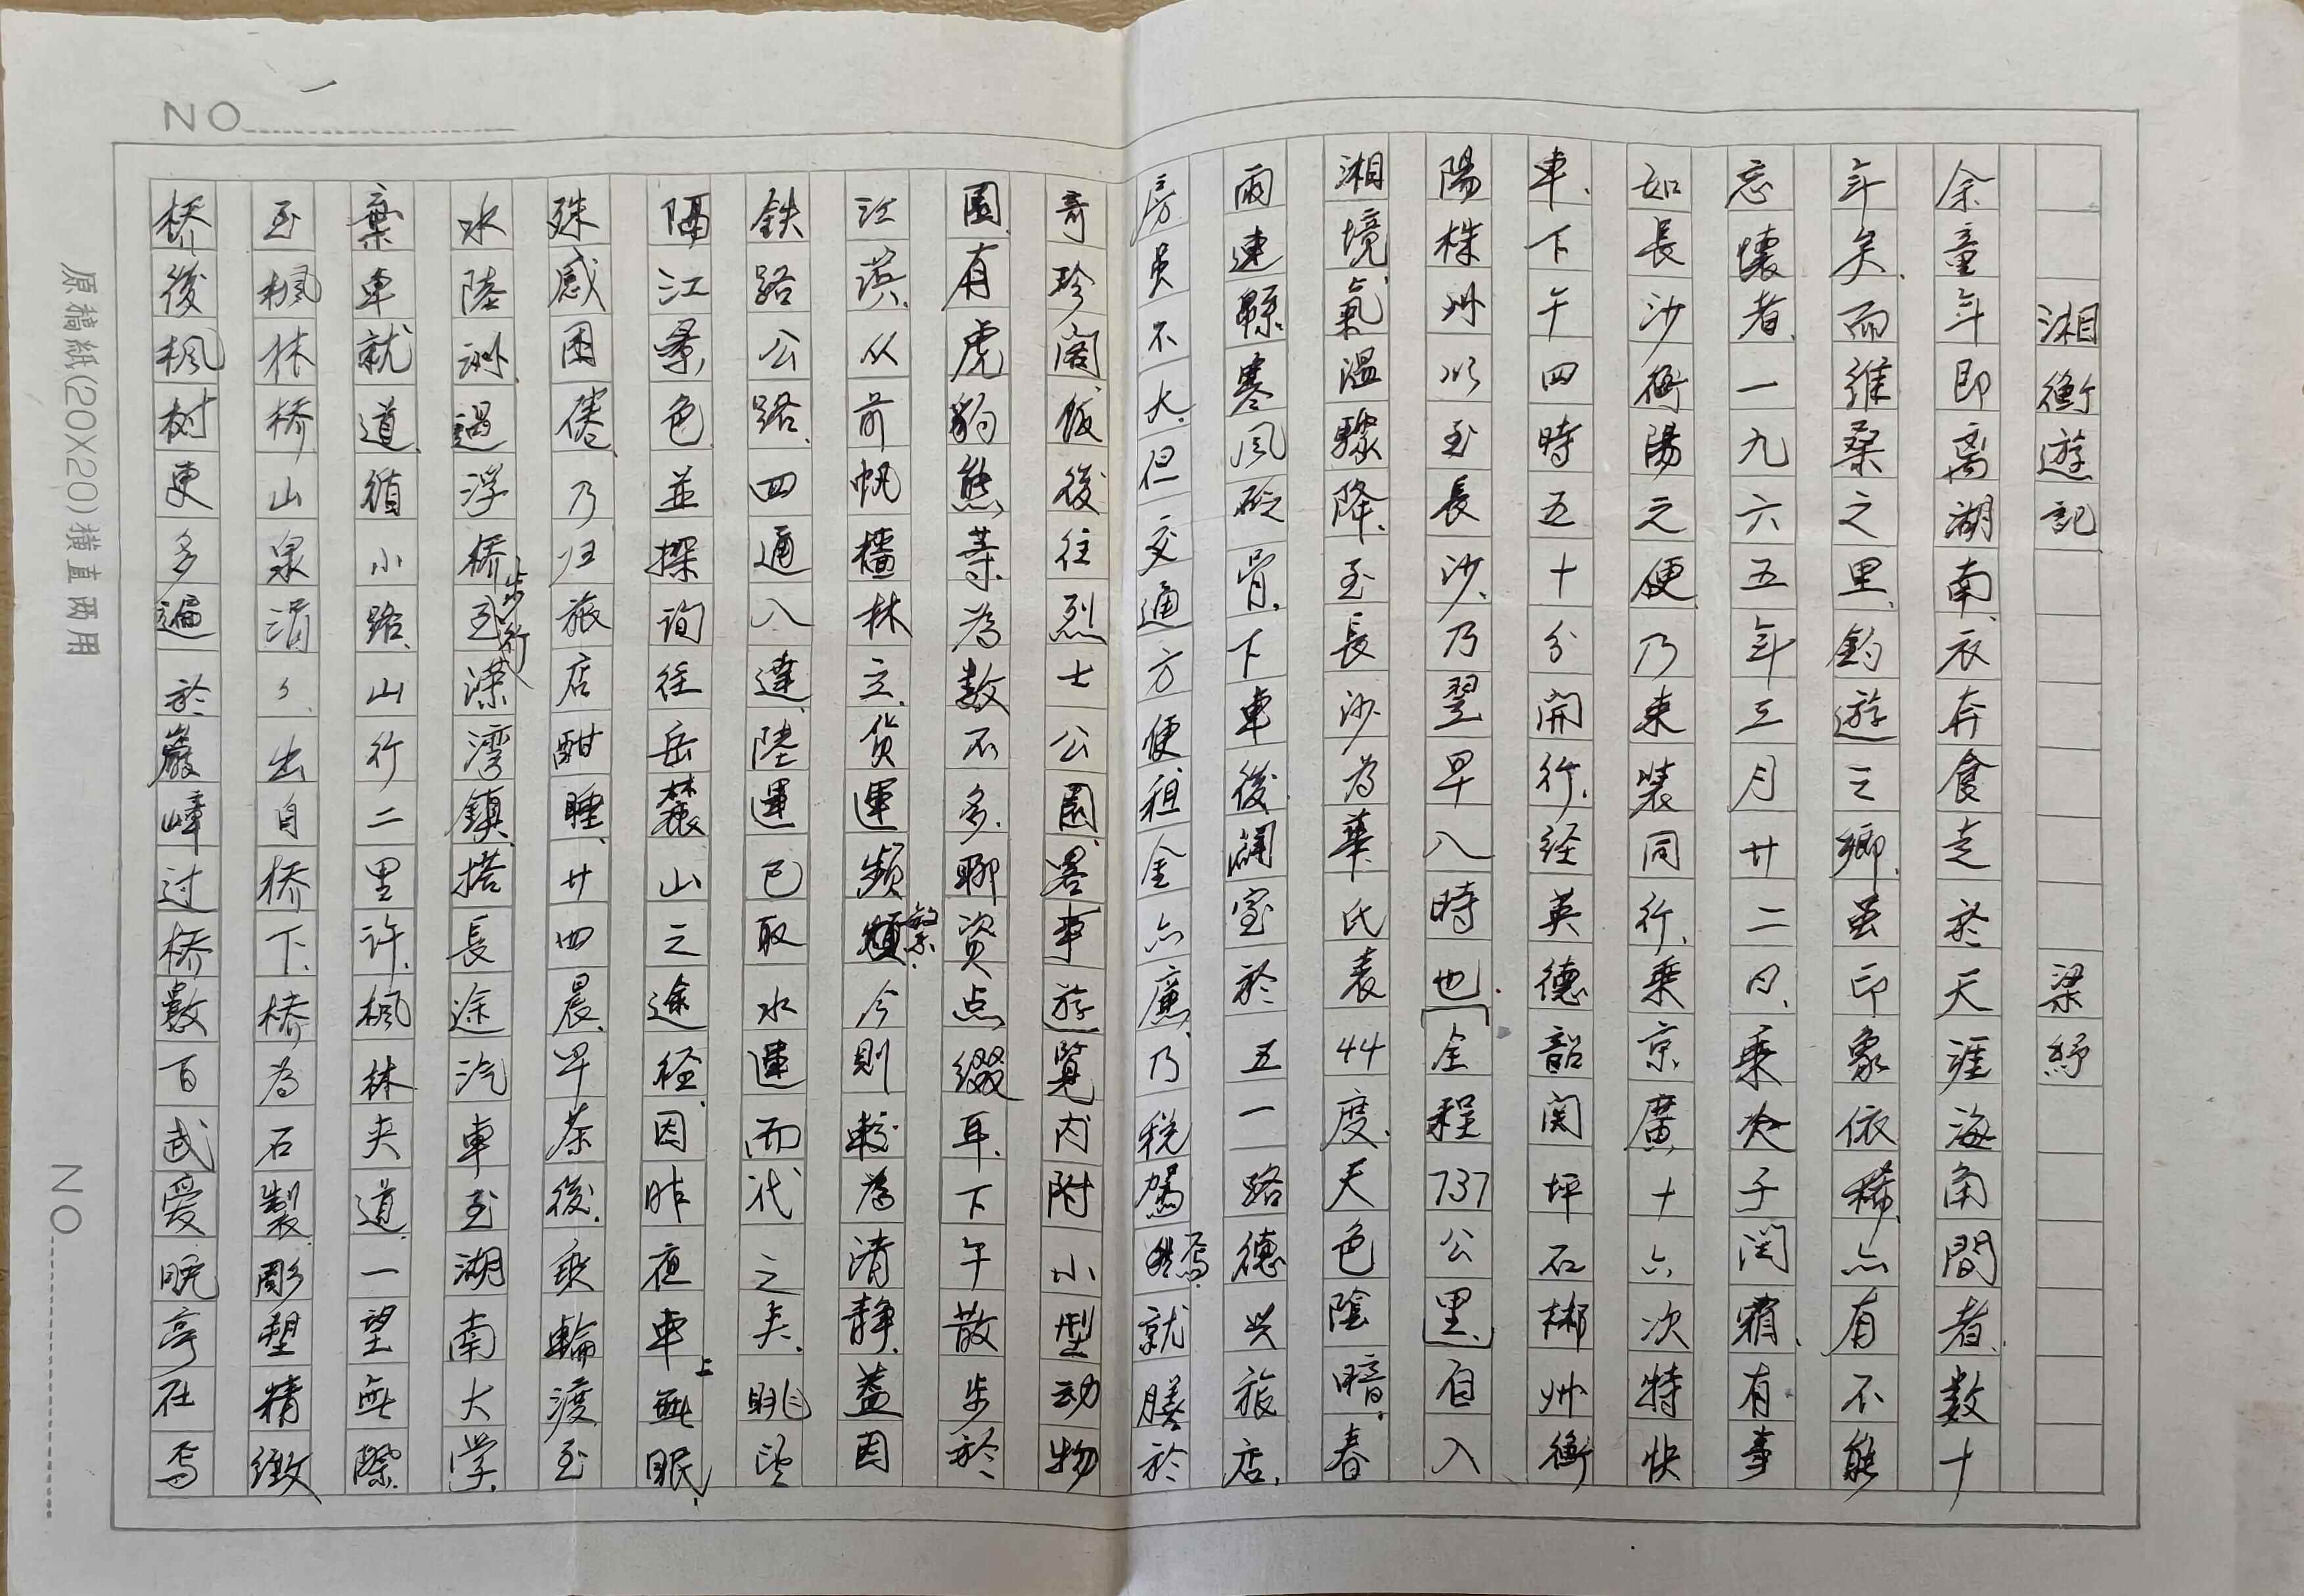 湘衡遊記 梁紓
余童年即离湖南、衣奔食走於天涯海角間者、数十
年矣、而維桑之里、釣遊之鄉、虽印象依稀、亦有不能
忘懷者、一九六五年三月廿二日、乘次子闰霜、有事
如長沙衡陽之便、乃束裝同行、乘京廣十六次特快
車、下午四時五十分開行、经英德韶関坪石郴州衡
陽株州以至長沙、乃翌早八時也.[全程737公里、]自入
湘境氣温驟降、至長沙為華氏表44度、天色陰暗、春
雨連緜、寒風砭骨、下車後、闢室於五一路德兴旅店、
房虽不大、但交通方便、租金亦廉、乃税駕焉、就膳於
奇珍阁、飯後往烈士公園、畧事遊覽、内附小型动物
園、有虎豹熊等、為数不多、聊资点缀耳、下午散步於
江濱、从前帆檣林立、货運頻繁、今則較為清静、蓋因
鉄路公路、四通八達、陸運已取水運而代之矣、眺望
隔江景色、並探询往岳麓山之途径、因昨夜車上無眠、
殊感困倦、乃归旅店酣睡、廿四晨、早茶後、乘輪渡至
水陸洲、過浮橋步行至溁湾鎮、搭長途汽車至湖南大学、
棄車就道、循小路、山行二里许、楓林夹道、一望無際、
至楓林桥、山泉涓々、出自桥下、橋為石製、彫塑精緻
桥後楓树更多、遍於巖嶂、过桥數百武、爱晚亭在焉
NO 一
原稿紙(20X20)横直两用
NO